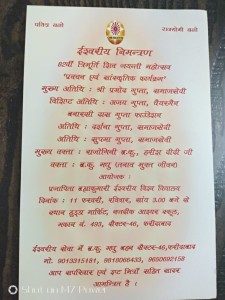 पवित्र बनो राजयोगी बनो
ईश्वरीय निमन्त्रण
82वीं त्रिमूर्ति शिव जयन्ती महोत्सव
"प्रवचन एवं सांस्कृतिक कार्यक्रम"
मुख्य अतिथि : श्री प्रमोद गुप्ता, समाजसेवी
विशिष्ट अतिथि : अजय गुप्ता, चैयरमैन
बनारसी दास गुप्ता फाउंडेशन
अतिथि : दर्शना गुप्ता, समाजसेवी
अतिथि : सुषमा गुप्ता, समाजसेवी
मुख्य वक्ता : राजयोगिनी ब.कु., हरीश दीदी जी
वक्ता : ब.कु. मधु (तनाव मुक्त जीवन)
आयोजक :
प्रजापिता ब्रह्माकुमारी ईश्वरीय विश्व विद्यालय
दिनांक : 11 फरवरी, रविवार, सांय 3.00 बजे से
स्थान हुड्डा मार्किट, मानवीक आइडियल स्कूल,
मकान नं. 493, सैक्टर-46, फरीदाबाद
ईश्वरीय सेवा में ब.कु. मधु बहन सैक्टर-46, फरीदाबाद
मो. 9013315181, 9818066433, 9650692158
आप सपरिवार एवं इष्ट मित्रों सहित सादर
आमन्त्रित हैं ।